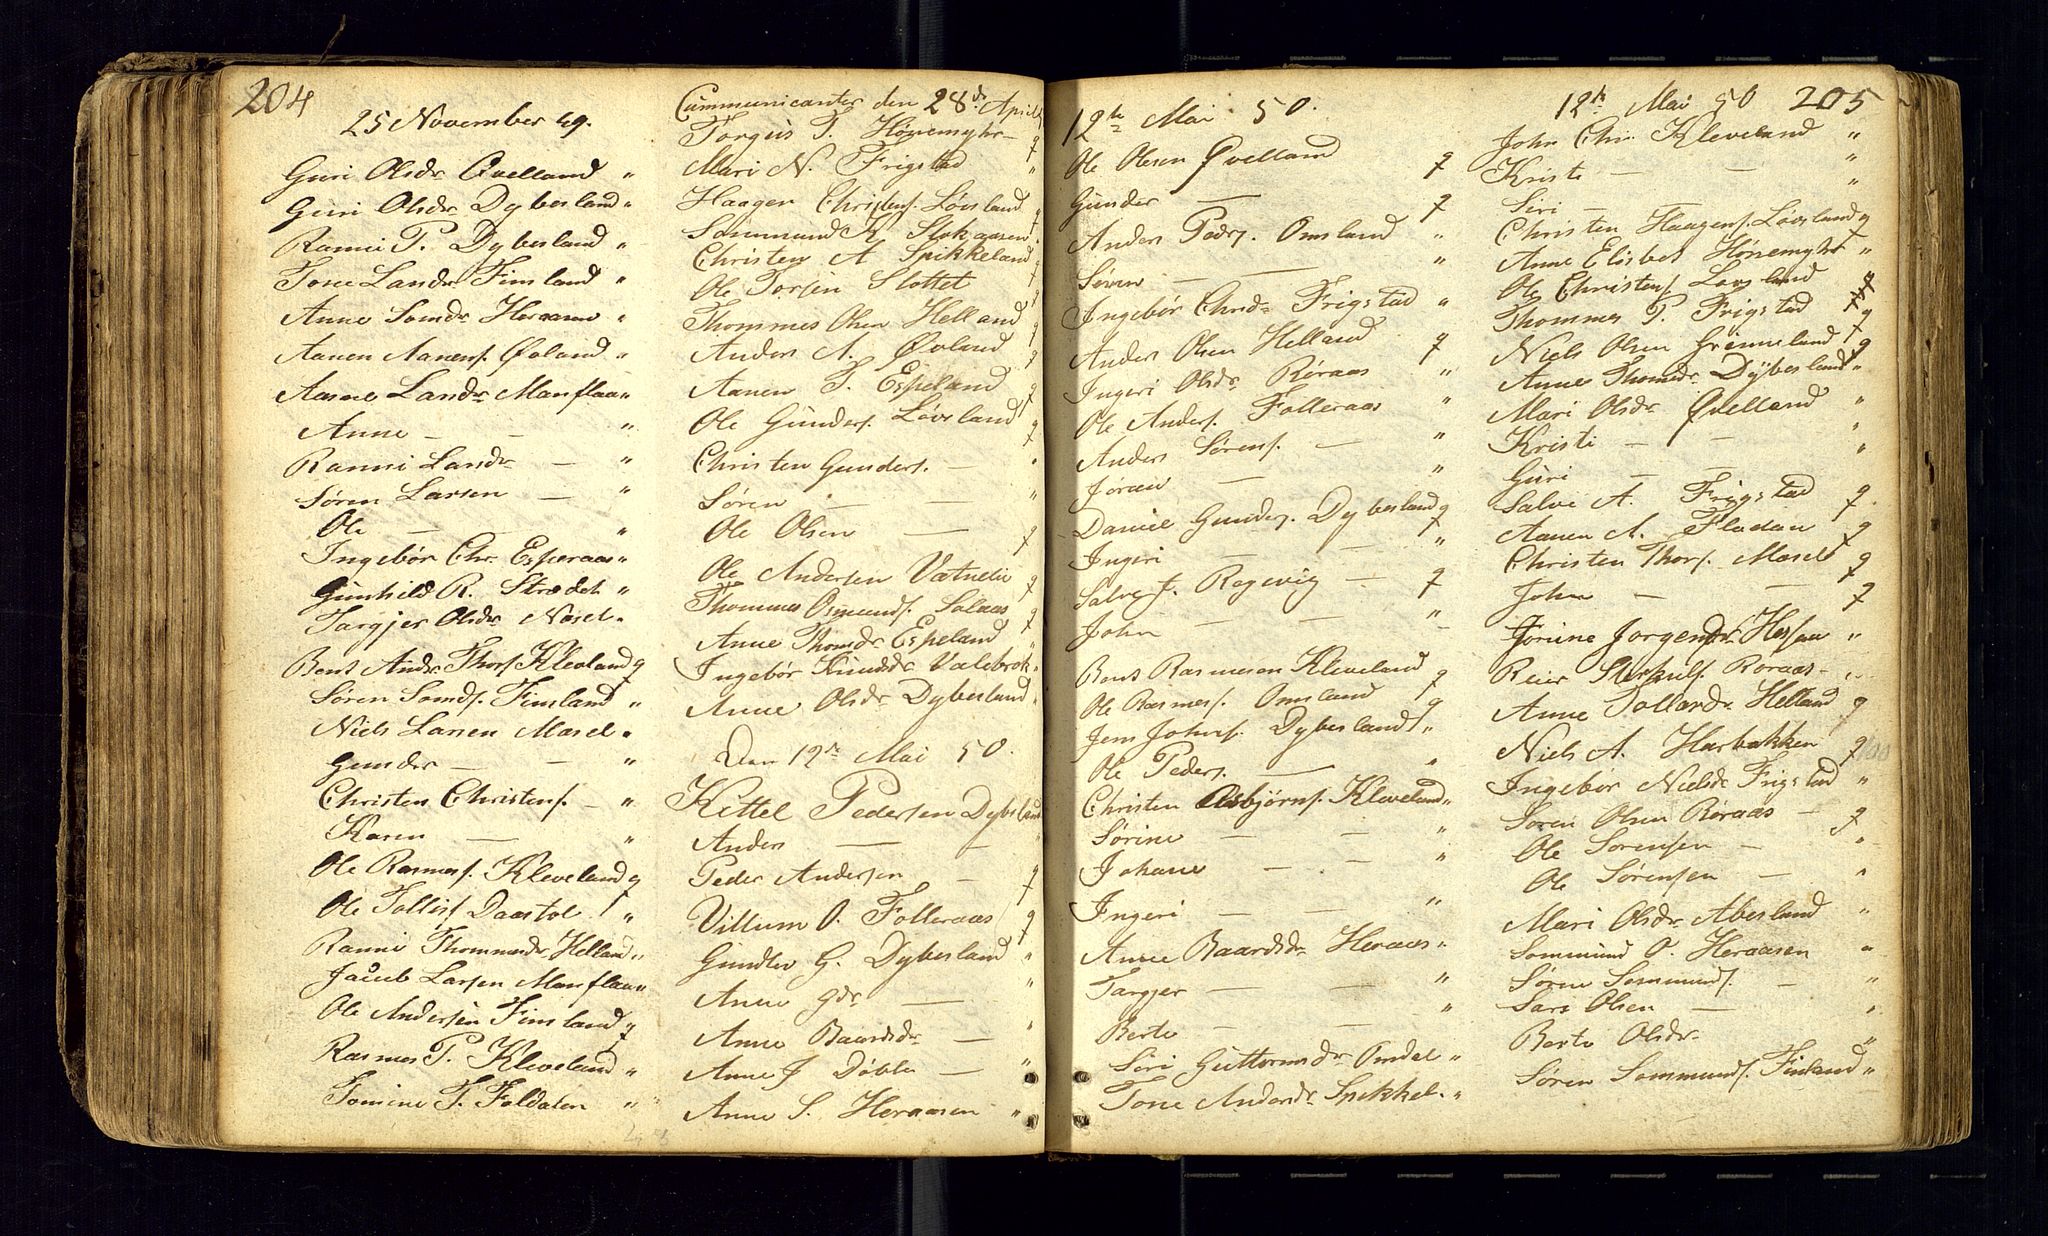 204
25 November 49.
Guri Olsdr Øvelland "
Guri Olsdr Dybesland "
Ranni P. Dybesland "
Tone Larsdr Finsland "
Anne Somdr Heraasen "
Aanen Aanens. Øvland "
Aasne Larsdr Manflaa "
Anne — — "
Ranni Larsdr — "
Søren Larsen — "
Ole — — "
Ingebør Chr. Esperaas "
Gunhild R. Strædet "
Targjer Olsdr Nosel "
Bent Andr Thors. Kleveland g
Søren Somds. Finsland "
Niels Larsen Mosel "
Gunder — — "
Christen Christens. — "
Karen — "
Ole Rasmuss. Kleveland g
Ole Tollefs. Daastøl "
Ranni Thommesdr Helland "
Jacob Larsen Manflaa "
Ole Andersen Finsland g
Rasmus P. Kleveland "
Tomine T. Foldalen "
Communicanter den 28de April
Torgus T. Hønemyhr g
Mari N. Frigstad "
Haagen Christens. Løvsland g
Sommund K. Stokaasen "
Christen A Spikkeland g
Ole Torsen Slottet g
Thommes Olsen Helland g
Anders A. Øvland g
Aanen T. Espeland g
Ole Gunders. Løvsland g
Christen Gunders. — "
Søren — — "
Ole Olsen — g
Ole Andersen Vatnelie g
Thommes Osmunds. Solaas g
Anne Thomdr Espeland "
Ingebør Knudsdr Valebrok "
Anne Olsdr Dybesland "
Den 12te Mai 50.
Kittel Pedersen Dybesland
Anders — — "
Peder Andersen — g
Villum O. Folleraas g
Gundler G. Dybesland "
Anne gdr — "
Anne Baardsdr — "
Anne J Døble — "
Anne S. Heraasen "
12te Mai 50.
Ole Olsen Øvelland g
Gunder — g
Anders Peders. Omsland "
Søren — — "
Ingebør Chrdr Frigstad "
Anders Olsen Helland g
Ingeri Olsdr Røraas "
Ole Anders. Folleraas "
Anders Sørens. — "
Jøran — "
Daniel Gunders. Dybesland g
Ingeri — — "
Salve J. Rogevig — g
John — — "
Bent Rasmusen Kleveland g
Ole Rasmus. Omsland g
Jens Johns. Dybesland "
Ole Peders. — "
Christen Asbjørns. Kleveland "
Sørine — — "
Johane — — "
Ingeri — — "
Anne Baardsdr Heraas "
Targjer — "
Berte — — "
Siri Guttormsdr Omdal "
Tone Andersdr Spikkel. "
12te Mai 50 205
John Chr. Kleveland "
Kristi — — "
Siri — — "
Christen Haagens. Løvsland g
Anne Elisbet Hønemyhr "
Ole Christens. Løvsland g
Thommes P. Frigstad g
Niels Olsen Grimmeland g
Anne Thomdr Dybesland "
Mari Olsdr Øvelland "
Kristi — — "
Guri — — "
Salve A. Frigstad g
Aanen A. Flodan g
Christen Thors. Mosel g
John — — g
Jorine Jorgensdr Hessaa "
Reier Røraas "
Anne Tollaksdr Helland g
Niels A. Harbakken g
Ingebør Nielsdr Frigstad "
Søren Olsen Røraas — g
Ole Sørensen — "
Ole Sørensen — "
Mari Olsdr Abesland "
Sommund O. Heraasen "
Sørine Sommunds. — "
Sars Olsen — "
Berte Olsdr "
Søren Sommunds. Finsland "